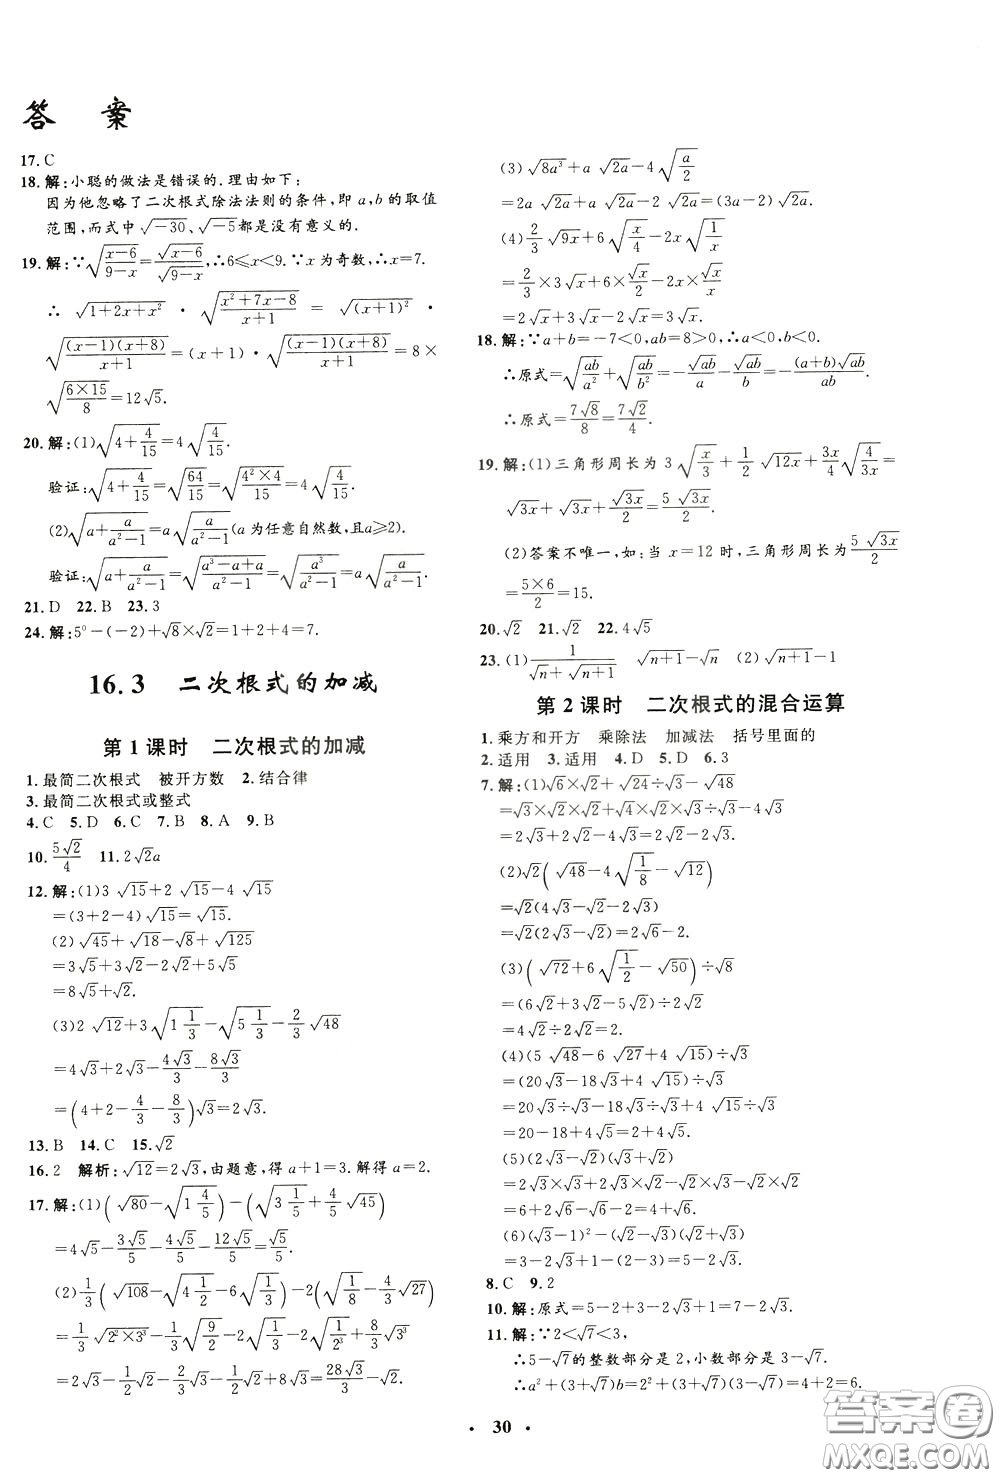 答 案
17. C
18. 解:小聪的做法是错误的.理由如下:
因为他忽略了二次根式除法法则的条件,即 a,b 的取值
范围,而式中√(-30)、√(-5)都是没有意义的.
19. 解:∵√((x-6)/(9-x))=√(x-6)/√(9-x),∴6≤x<9.∵x 为奇数,∴x=7.
∴ √(1+2x+x²) · √((x²+7x-8)/(x+1)) = √((x+1)²) ·
√((x-1)(x+8)/(x+1))=(x+1)·√((x-1)(x+8)/(x+1))=8×
√((6×15)/8)=12√5.
20. 解:(1)√(4+4/15)=4√(4/15).
验证:√(4+4/15)=√(64/15)=√((4²×4)/15)=4√(4/15).
(2)√(a+a/(a²-1))=a√(a/(a²-1))(a 为任意自然数,且a≥2).
验证:√(a+a/(a²-1))=√((a³-a+a)/(a²-1))=√(a³/(a²-1))=a√(a/(a²-1)).
21. D 22. B 23. 3
24. 解:5⁰-(-2)+√8×√2=1+2+4=7.
16.3 二次根式的加减
第 1 课时 二次根式的加减
1. 最简二次根式 被开方数 2. 结合律
3. 最简二次根式或整式
4. C 5. D 6. C 7. B 8. A 9. B
10. 5√2/4 11. 2√2a
12. 解:(1)3√15+2√15-4√15
=(3+2-4)√15=√15.
(2)√45+√18-√8+√125
=3√5+3√2-2√2+5√5
=8√5+√2.
(3)2√12+3√(1 1/3)-√(5 1/3)-2/3√48
=4√3+2√3-4√3/3-8√3/3
=(4+2-4/3-8/3)√3=2√3.
13. B 14. C 15. √2
16. 2 解析:√12=2√3,由题意,得 a+1=3.解得 a=2.
17. 解:(1)(√80-√(1 4/5))-(√(3 1/5)+4/5√45)
=4√5-3√5/5-4√5/5-12√5/5=√5/5.
(2)1/3(√108-√(4 1/2)-6√(1/3))-2(√(1/8)-√27)
=1/3√(2²×3³)-1/3√(9/2)-2√(1/3)-2√(1/8)+2√3³
=2√3-√2/2-2/3√3-√2/2+6√3=22√3/3-√2.
(3)√(8a³)+a√(2a)-4√(a/2)
=2a√(2a)+a√(2a)-2√(2a)=(3a-2)√(2a).
(4)2/3√(9x)+6√(x/4)-2x√(1/x)
=2/3×3√x+6×√x/2-2x×√x/x
=2√x+3√x-2√x=3√x.
18. 解:∵a+b=-7<0,ab=8>0,∴a<0,b<0.
∴原式=√(ab/a²)+√(ab/b²)=-√ab/a-√ab/b=-(a+b)√ab/ab.
∴原式=7√8/8=7√2/4.
19. 解:(1)三角形周长为 3√(x/3)+1/2√(12x)+3x/4√(4/(3x))=
√(3x)+√(3x)+√(3x)/2=5√(3x)/2.
(2)答案不唯一,如:当 x=12 时,三角形周长为5√(3x)/2
=(5×6)/2=15.
20. √2 21. √2 22. 4√5
23. (1)1/(√n+√(n+1)) √(n+1)-√n (2)√(n+1)-1
第 2 课时 二次根式的混合运算
1. 乘方和开方 乘除法 加减法 括号里面的
2. 适用 3. 适用 4. D 5. D 6. 3
7. 解:(1)√6×√2+√24÷√3-√48
=√3×√2×√2+√4×√2×√3÷√3-4√3
=2√3+2√2-4√3=2√2-2√3.
(2)√2(√48-4√(1/8)-√12)
=√2(4√3-√2-2√3)
=√2(2√3-√2)=2√6-2.
(3)(√72+6√(1/2)-√50)÷√8
=(6√2+3√2-5√2)÷2√2
=4√2÷2√2=2.
(4)(5√48-6√27+4√15)÷√3
=(20√3-18√3+4√15)÷√3
=20√3÷√3-18√3÷√3+4√15÷√3
=20-18+4√5=2+4√5.
(5)(2√3-√2)(√3+√2)
=2√3×√3+2√3×√2-√2×√3-√2×√2
=6+2√6-√6-2=4+√6.
(6)(√3-1)²-(√3-√2)(√3+√2)
=3-2√3+1-(3-2)=3-2√3.
8. C 9. 2
10. 解:原式=5-2+3-2√3+1=7-2√3.
11. 解:∵2<√7<3,
∴5-√7的整数部分是 2,小数部分是 3-√7.
∴a²+(3+√7)b=2²+(3+√7)(3-√7)=4+2=6.
· 30 ·
答案圈
MXQE.COM